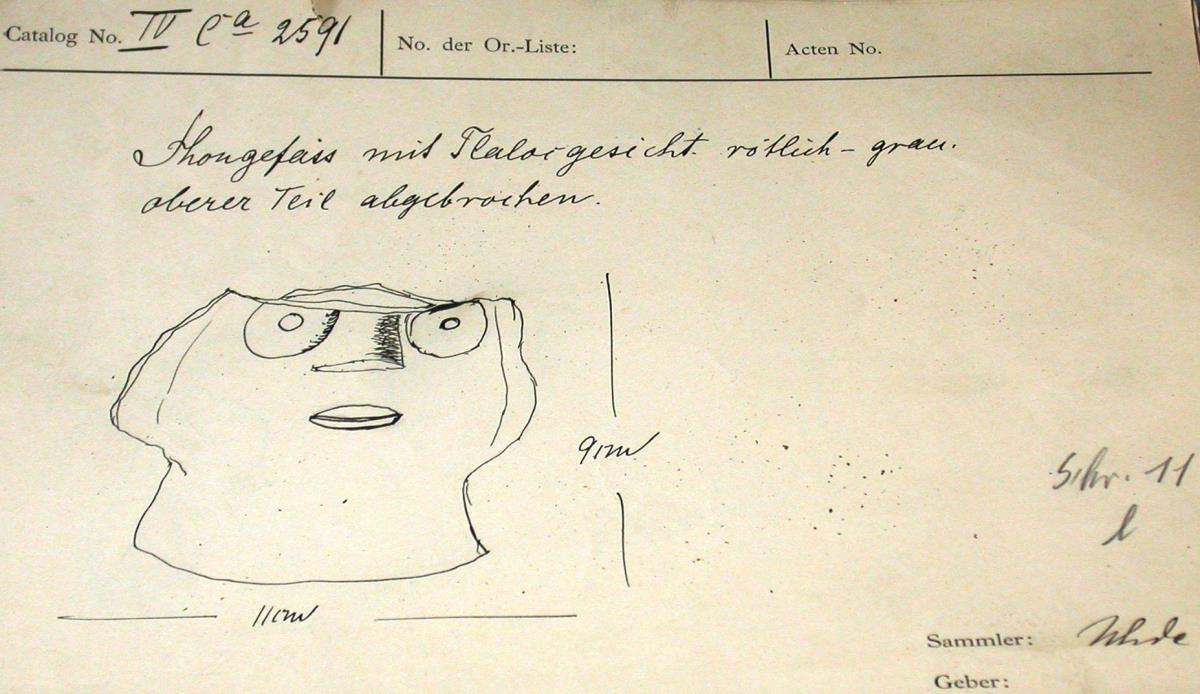 Catalog No. IV Ca 2591
No. der Or.-Liste:
Acten No.
Thongefäss mit Tlalocgesicht rötlich-grau.
oberer Teil abgebrochen.
9cm
Schr. 11
l
11cm
Sammler: Uhde
Geber: